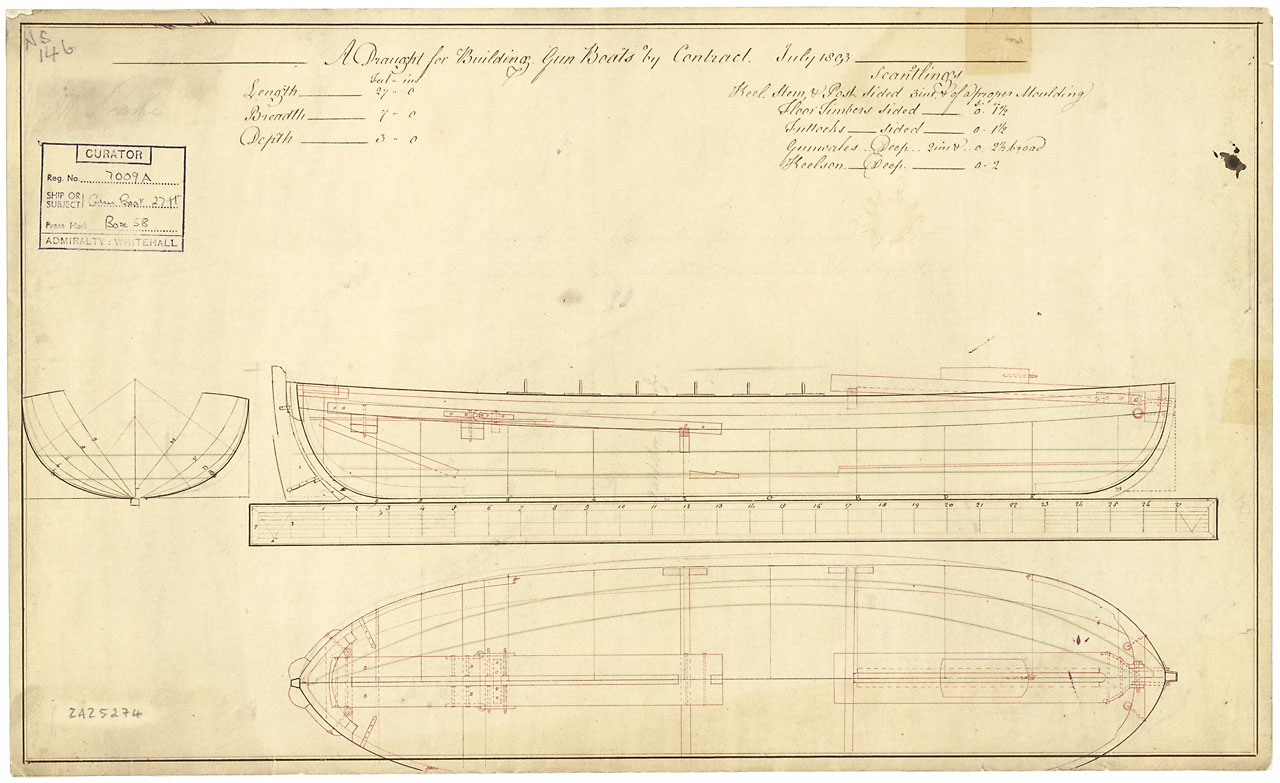 NS
146
A Draught for Building Gun Boats by Contract. July 1803
Feet - in
Length 27 - 0
Breadth 7 - 0
Depth 3 - 0
Scantlings
Keel, Stem, & Post sided 3 in & of a proper Moulding
Floor Timbers sided 0 - 1½
Futtocks sided 0 - 1½
Gunwales Deep 2 in & 0 2½ broad
Keelson Deep 0 - 2
CURATOR
Reg. No. 7009A
SHIP OR SUBJECT Gun Boat 27 ft
Press Mark Box 58
ADMIRALTY: WHITEHALL
1 2 3 4 5 6 7 8 9 10 11 12 13 14 15 16 17 18 19 20 21 22 23 24 25 26 27
ZAZ5274